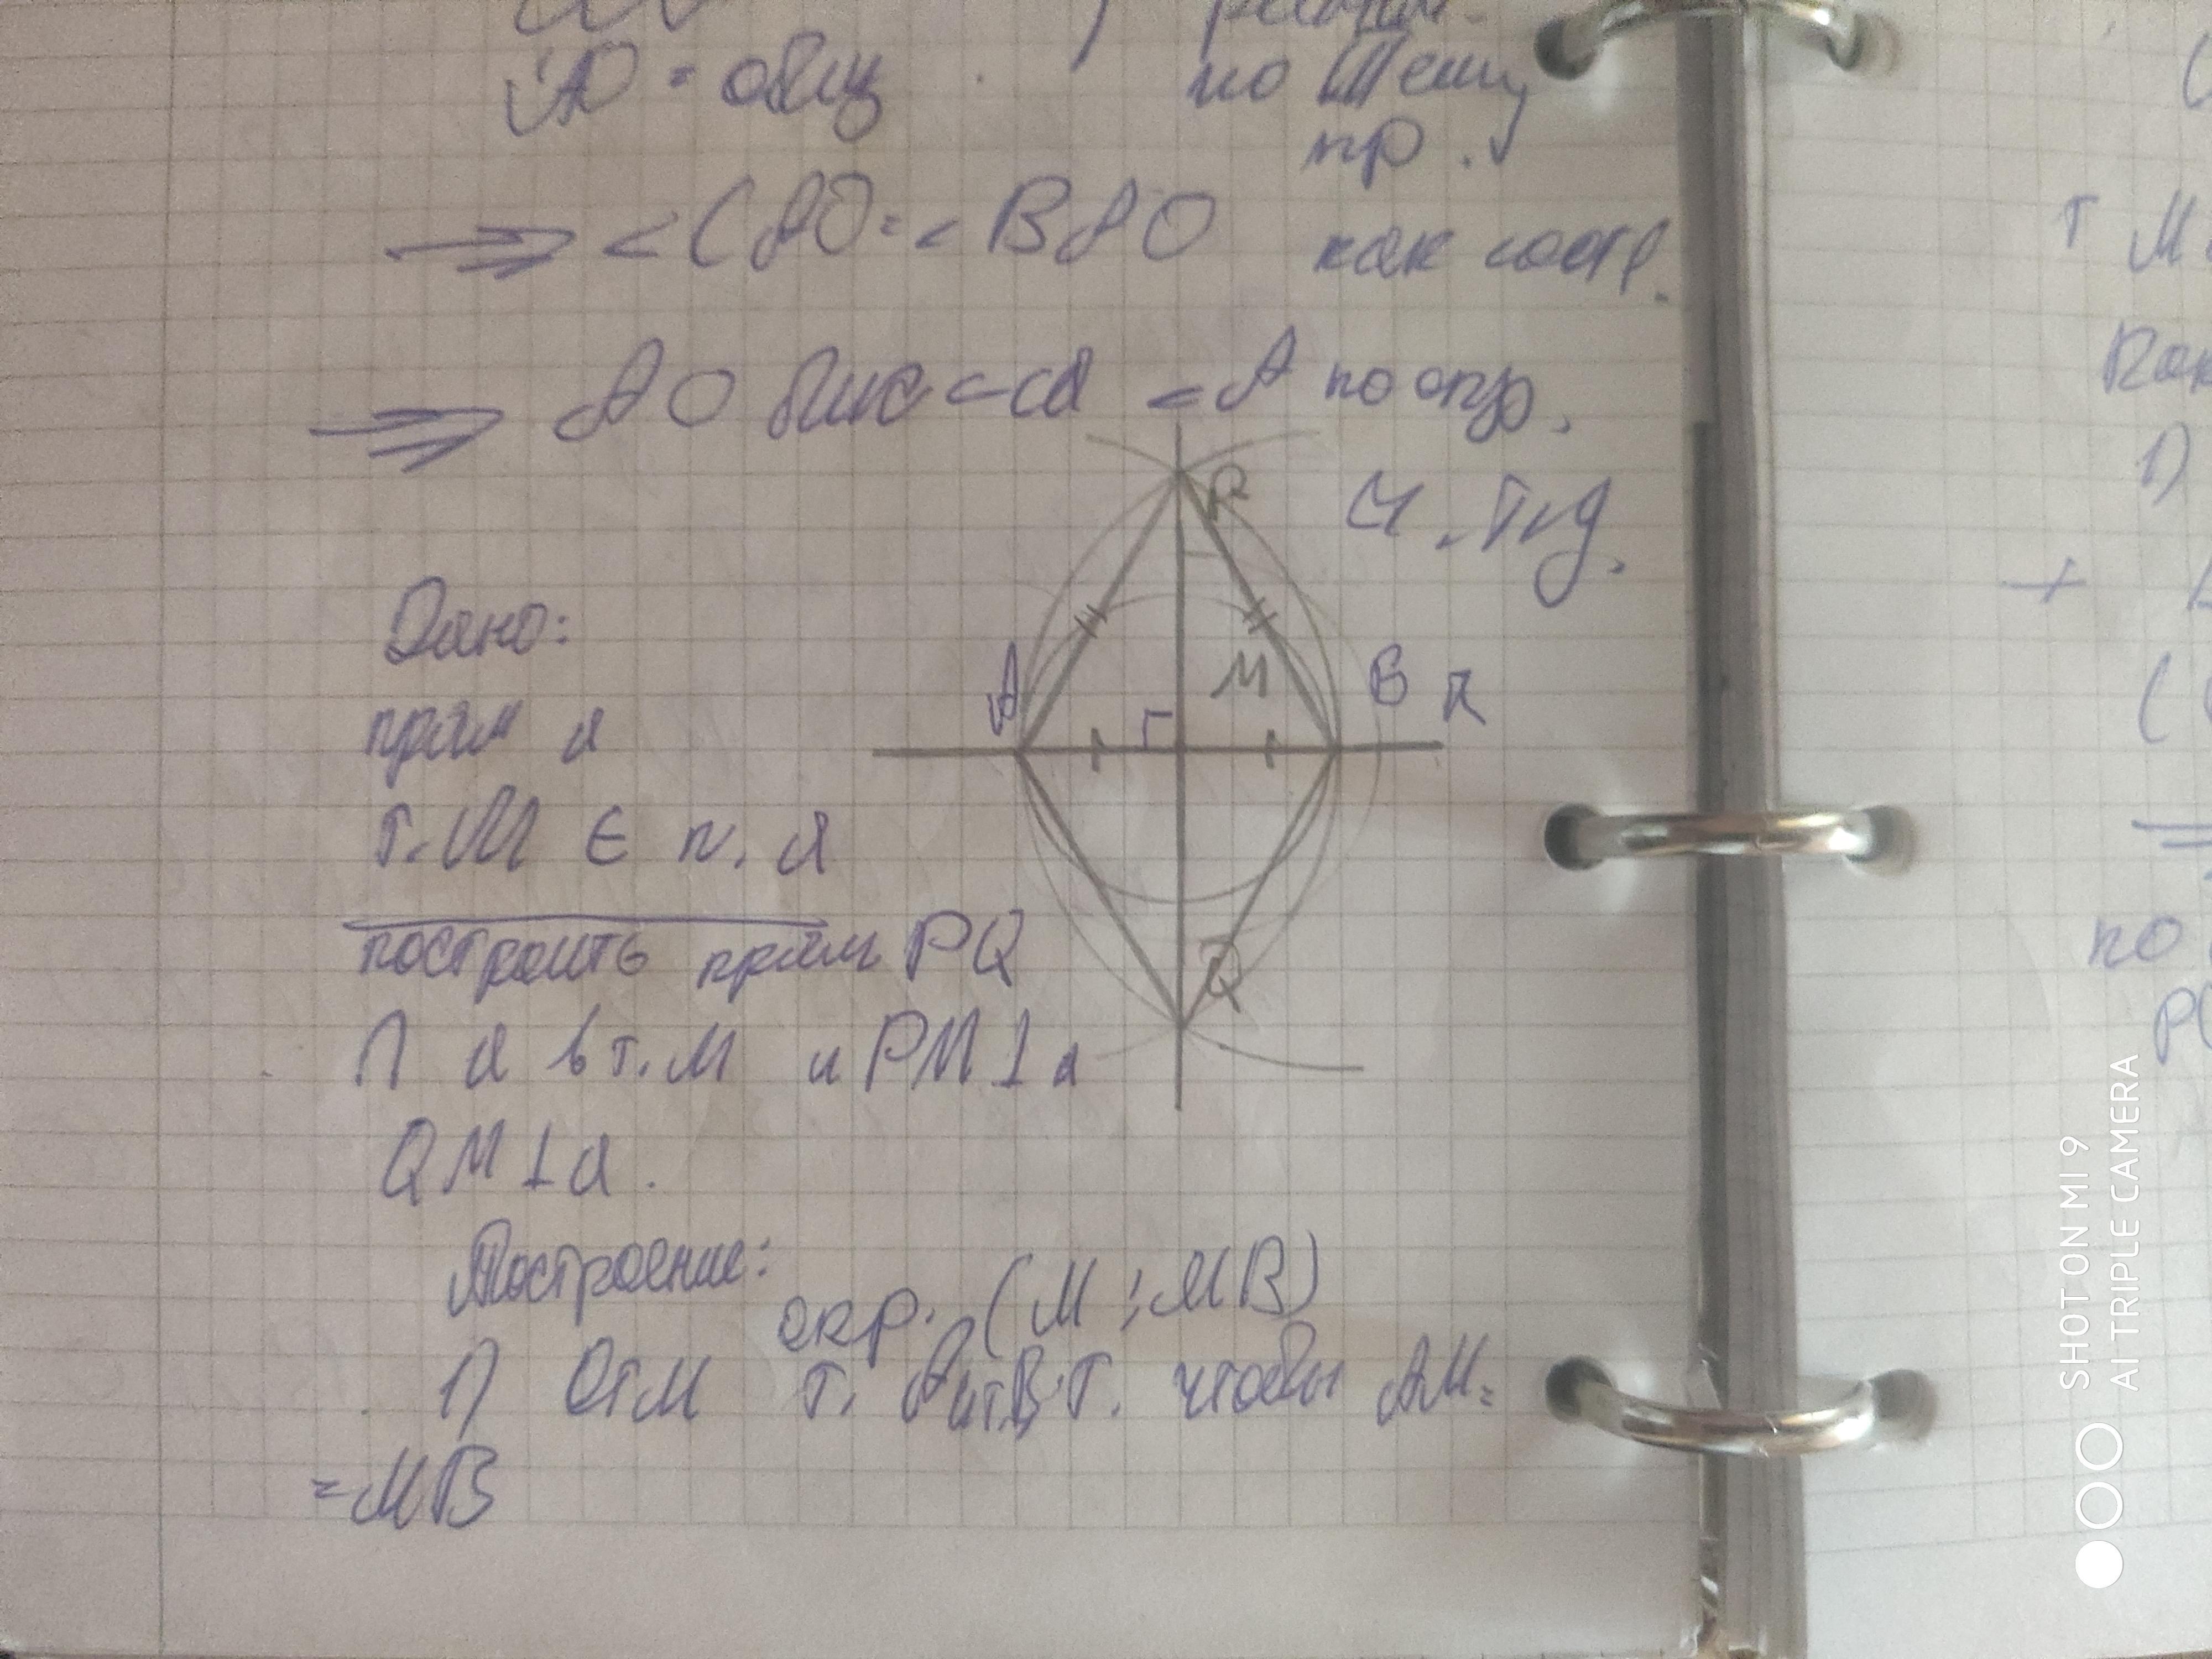 AO - общ
по трем
пр.
⇒ <CAO = < BAO как соотв.
⇒ AO бисс-са <A по опр.
ч.т.д.
P
Дано:
A M B a
прям a
т. M ∈ п. a
построить прям PQ
Q
∩ a в т. M и PM ⊥ a
QM ⊥ a.
Построение:
окр. (M; MB)
1) От M т. A и т. B, т. чтобы AM =
= MB
т M
1)
+
по
SHOT ON MI 9
AI TRIPLE CAMERA